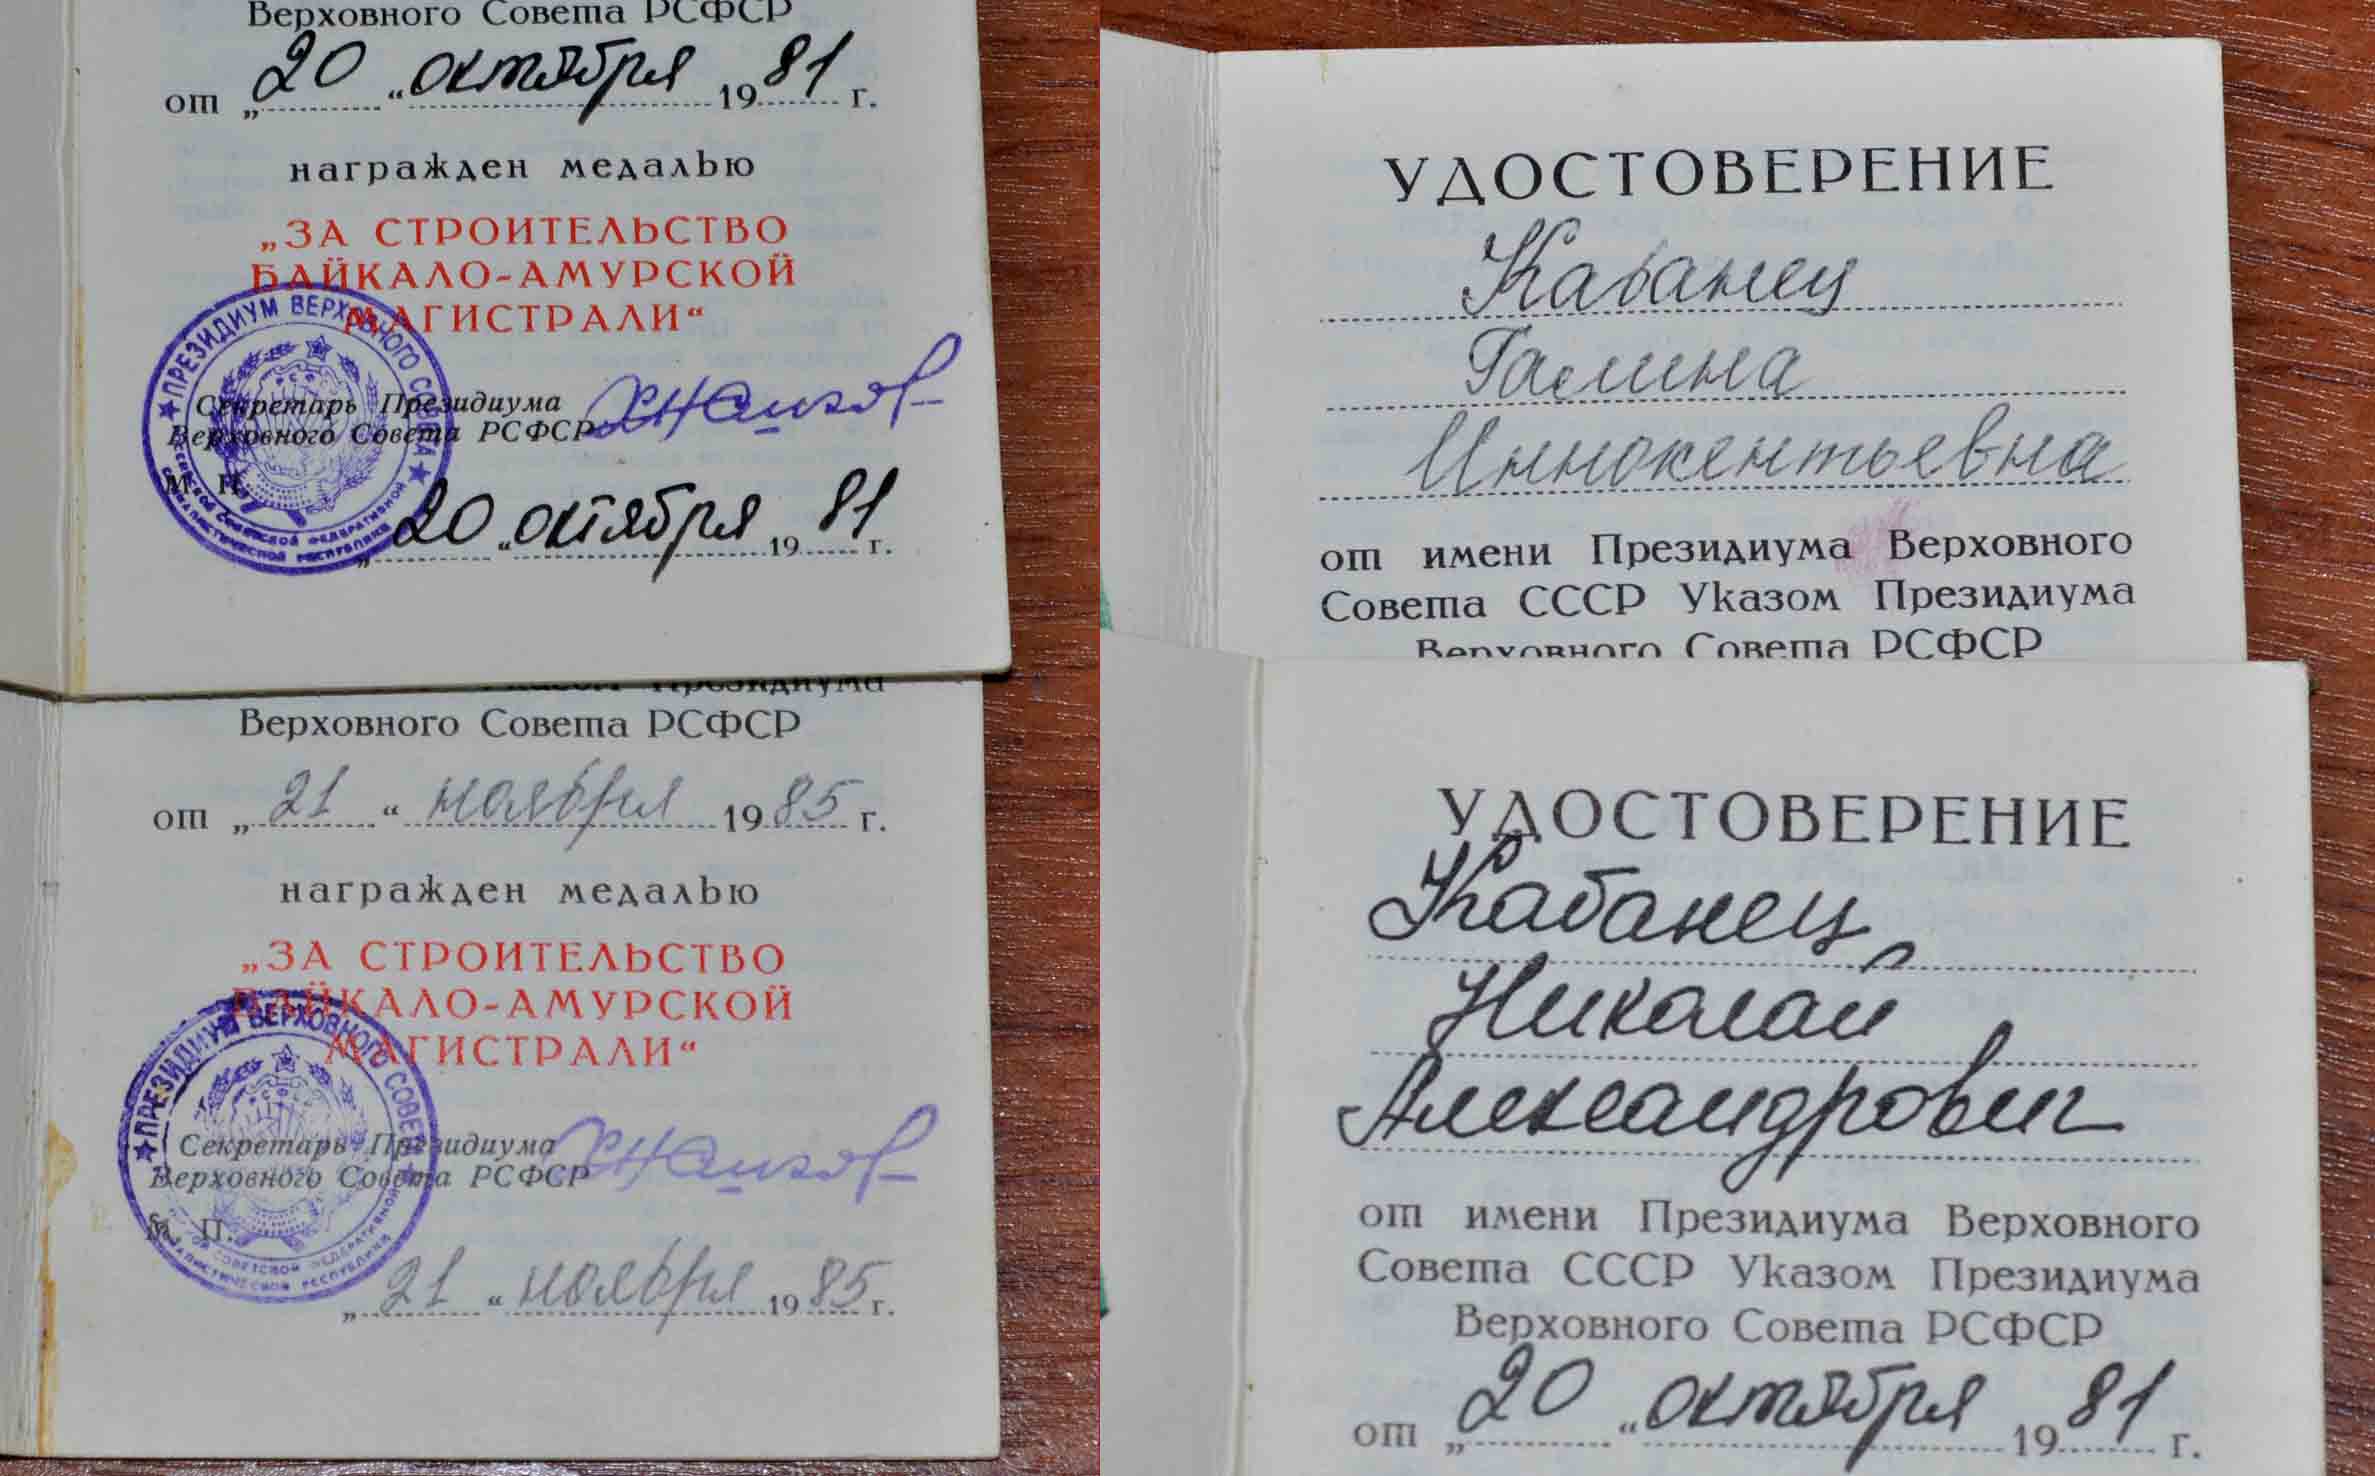 Верховного Совета РСФСР
от „20“ октября 1981 г.
награжден медалью
„ЗА СТРОИТЕЛЬСТВО
БАЙКАЛО-АМУРСКОЙ
МАГИСТРАЛИ“
ПРЕЗИДИУМ ВЕРХОВНОГО СОВЕТА
Секретарь Президиума
Верховного Совета РСФСР
М. П.
„20“ октября 1981 г.
Указом Президиума
Верховного Совета РСФСР
от „21“ ноября 1985 г.
награжден медалью
„ЗА СТРОИТЕЛЬСТВО
БАЙКАЛО-АМУРСКОЙ
МАГИСТРАЛИ“
ПРЕЗИДИУМ ВЕРХОВНОГО СОВЕТА
Секретарь Президиума
Верховного Совета РСФСР
М. П.
„21“ ноября 1985 г.
УДОСТОВЕРЕНИЕ
Кабанец
Галина
Иннокентьевна
от имени Президиума Верховного
Совета СССР Указом Президиума
Верховного Совета РСФСР
УДОСТОВЕРЕНИЕ
Кабанец
Николай
Александрович
от имени Президиума Верховного
Совета СССР Указом Президиума
Верховного Совета РСФСР
от „20“ октября 1981 г.